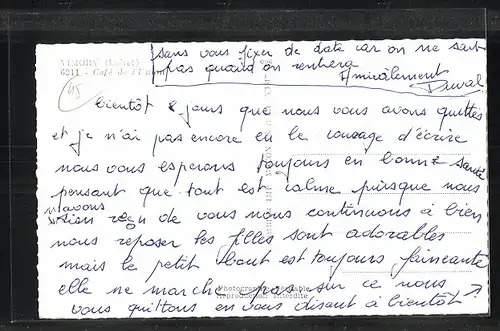 VIMORY (Loiret)
6211 - Café de l'Union
sans vous fixer de date car on ne sait
pas quand on rentrera
Amicalement
Duval
45
bientôt 8 jours que nous vous avons quittés
et je n'ai pas encore eu le courage d'écrire
nous vous esperons toujours en bonne santé
pensant que tout est calme puisque nous
n'avons
rien reçu de vous nous continuons à bien
nous reposer les filles sont adorables
mais le petit bout est toujours faineante
elle ne marche pas sur ce nous
vous quittons en vous disant à bientôt
Photographie Véritable
Reproduction Interdite